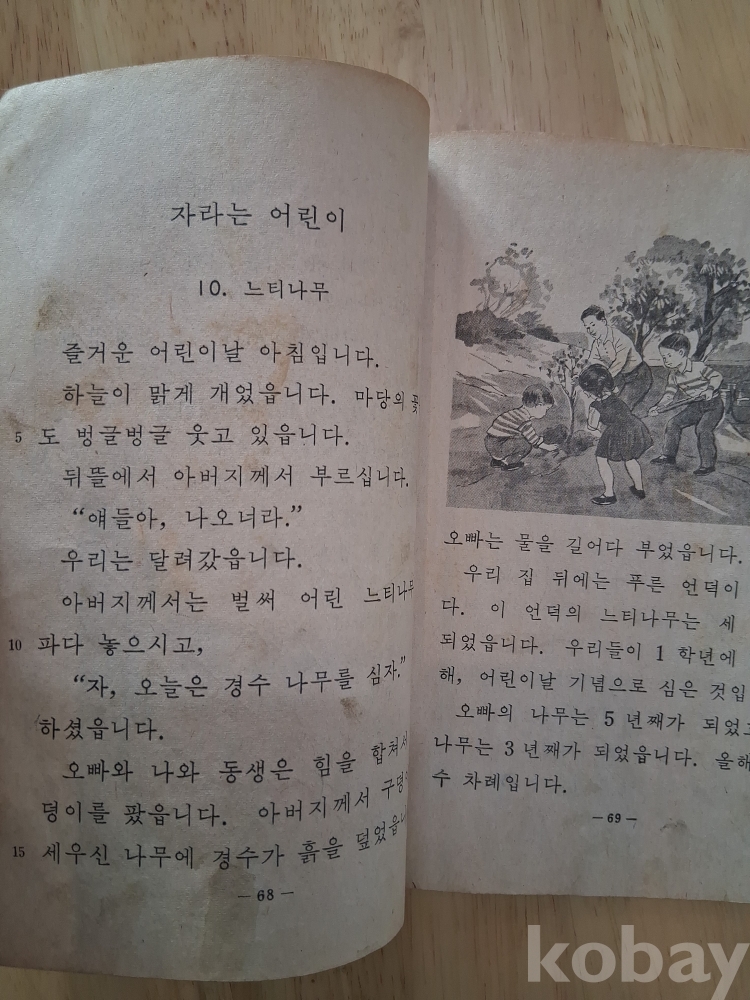 자라는 어린이
10. 느티나무
즐거운 어린이날 아침입니다.
하늘이 맑게 개었읍니다. 마당의 꽃
5 도 벙글벙글 웃고 있읍니다.
뒤뜰에서 아버지께서 부르십니다.
“얘들아, 나오너라.”
우리는 달려갔읍니다.
아버지께서는 벌써 어린 느티나무
10 파다 놓으시고,
“자, 오늘은 경수 나무를 심자.”
하셨읍니다.
오빠와 나와 동생은 힘을 합쳐서
덩이를 팠읍니다. 아버지께서 구덩
15 세우신 나무에 경수가 흙을 덮었읍니
— 68 —
오빠는 물을 길어다 부었읍니다.
우리 집 뒤에는 푸른 언덕이
다. 이 언덕의 느티나무는 세
되었읍니다. 우리들이 1 학년에
해, 어린이날 기념으로 심은 것입
오빠의 나무는 5 년째가 되었고
나무는 3 년째가 되었읍니다. 올해
수 차례입니다.
— 69 —
kobay